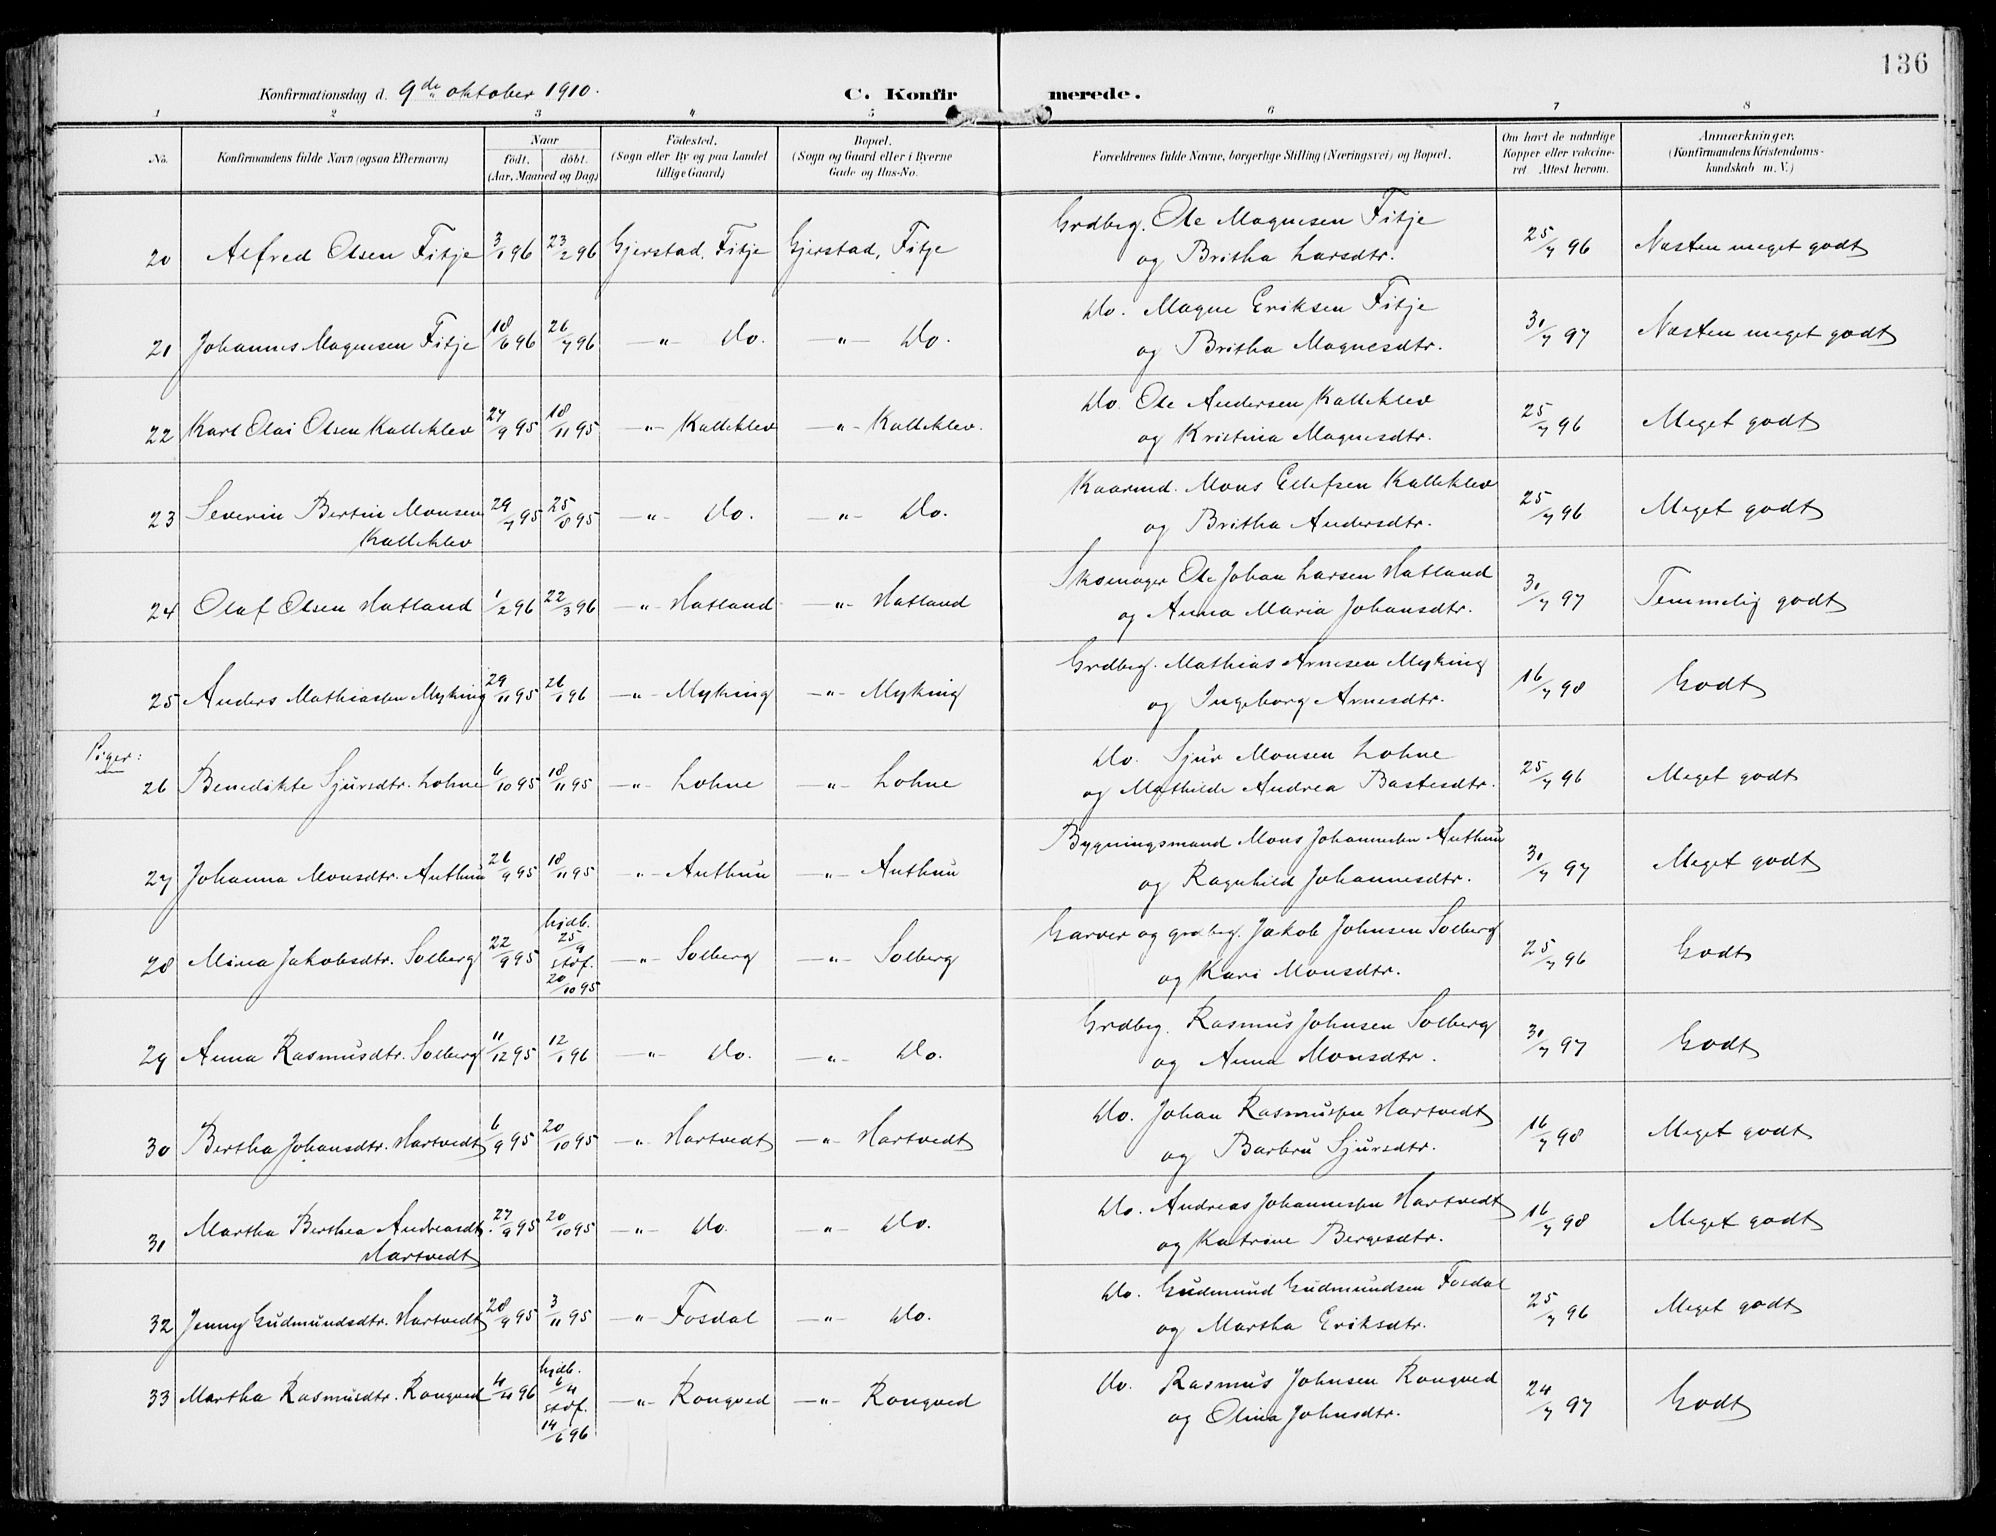 136
Konfirmationsdag d. 9de oktober 1910.
C. Konfir merede.
1 2 3 4 5 6 7 8
No.
Konfirmandens fulde Navn (ogsaa Efternavn)
Naar
født. døbt.
(Aar, Maaned og Dag)
Fødested.
(Sogn eller By og paa Landet
tillige Gaard)
Bopæl.
(Sogn og Gaard eller i Byerne
Gade og Hus-No.
Forældrenes fulde Navne, borgerlige Stilling (Næringsvei) og Bopæl.
Om havt de naturlige
Kopper eller vakcine-
ret Attest herom.
Anmærkninger.
(Konfirmandens Kristendoms-
kundskab m. V.)
20 Alfred Olsen Fitje 3/1 96 23/2 96 Gjerstad, Fitje Gjerstad, Fitje Grdbrg. Ole Magnesen Fitje 25/7 96 Næsten meget godt
og Britha Larsdtr.
21 Johannes Magnesen Fitje 18/6 96 26/7 96 —"— Do. —"— Do. Do. Magne Eriksen Fitje 30/7 97 Næsten meget godt
og Britha Magnesdtr.
22 Karl Olai Olsen Kalleklev 27/9 95 18/11 95 —"— Kalleklev —"— Kalleklev. Do. Ole Andersen Kalleklev 25/7 96 Meget godt
og Kristina Magnesdtr.
23 Severin Bertin Monsen 29/7 95 25/8 95 —"— Do. —"— Do. Kaarmd. Mons Ellefsen Kalleklev 25/7 96 Meget godt
Kalleklev og Britha Andersdtr.
24 Olaf Olsen Hatland 1/2 96 22/3 96 —"— Hatland —"— Hatland Skomager Ole Johan Larsen Hatland 30/7 97 Temmelig godt
og Anna Maria Johansdtr.
25 Anders Mathiassen Myking 29/11 95 26/1 96 —"— Myking —"— Myking Grdbrg. Mathias Arnesen Myking 16/7 98 Godt
og Ingeborg Arnesdtr.
Piger:
26 Benedikte Sjursdtr. Lohne 6/10 95 18/11 95 —"— Lohne —"— Lohne Do. Sjur Monsen Lohne 25/7 96 Meget godt
og Mathilde Andrea Bastesdtr.
27 Johanna Monsdtr. Anthun 26/9 95 18/11 95 —"— Anthun —"— Anthun Bygningsmand Mons Johannesen Anthun 30/7 97 Meget godt
og Ragnhild Johannesdtr.
28 Mina Jakobsdtr. Solberg 22/9 95 hjdb. 25/9 stdf. 20/10 95 —"— Solberg —"— Solberg Garver og grdbrg. Jakob Johnsen Solberg 25/7 96 Godt
og Kari Monsdtr.
29 Anna Rasmusdtr. Solberg 11/12 95 12/1 96 —"— Do. —"— Do. Grdbrg. Rasmus Johnsen Solberg 30/7 97 Godt
og Anna Monsdtr.
30 Bertha Johansdtr. Hartvedt 6/9 95 20/10 95 —"— Hartvedt —"— Hartvedt Do. Johan Rasmussen Hartvedt 16/7 98 Meget godt
og Barbru Sjursdtr.
31 Martha Berthea Andreasdt. 27/9 95 20/10 95 —"— Do. —"— Do. Do. Andreas Johannessen Hartvedt 16/7 98 Meget godt
Hartvedt og Katrine Bergesdtr.
32 Jenny Gudmundsdtr. Hartvedt 28/9 95 3/11 95 —"— Fosdal —"— Do. Do. Gudmund Gudmundsen Fosdal 25/7 96 Meget godt
og Martha Eriksdtr.
33 Martha Rasmusdtr. Rongved 4/4 96 hjdb. 6/4 stdf. 14/6 96 —"— Rongved —"— Rongved Do. Rasmus Johnsen Rongved 24/7 97 Godt
og Olina Johnsdtr.